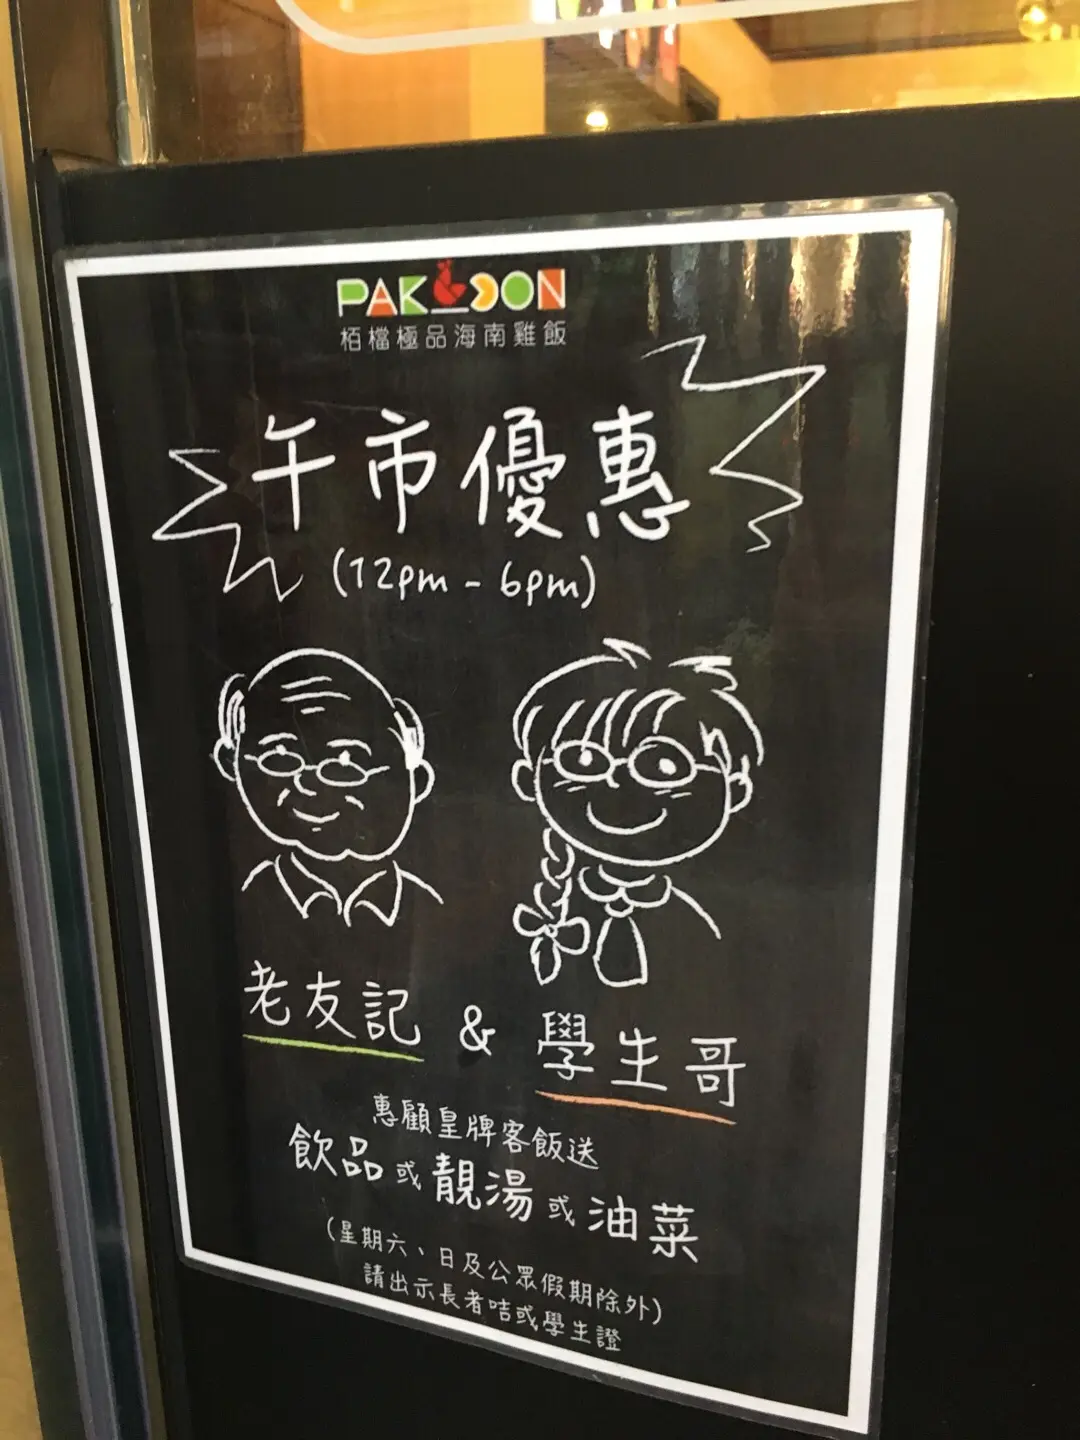 PAK DON
栢檔極品海南雞飯
午市優惠
(12pm - 6pm)
老友記 & 學生哥
惠顧皇牌客飯送
飲品或靚湯或油菜
(星期六、日及公眾假期除外)
請出示長者咭或學生證